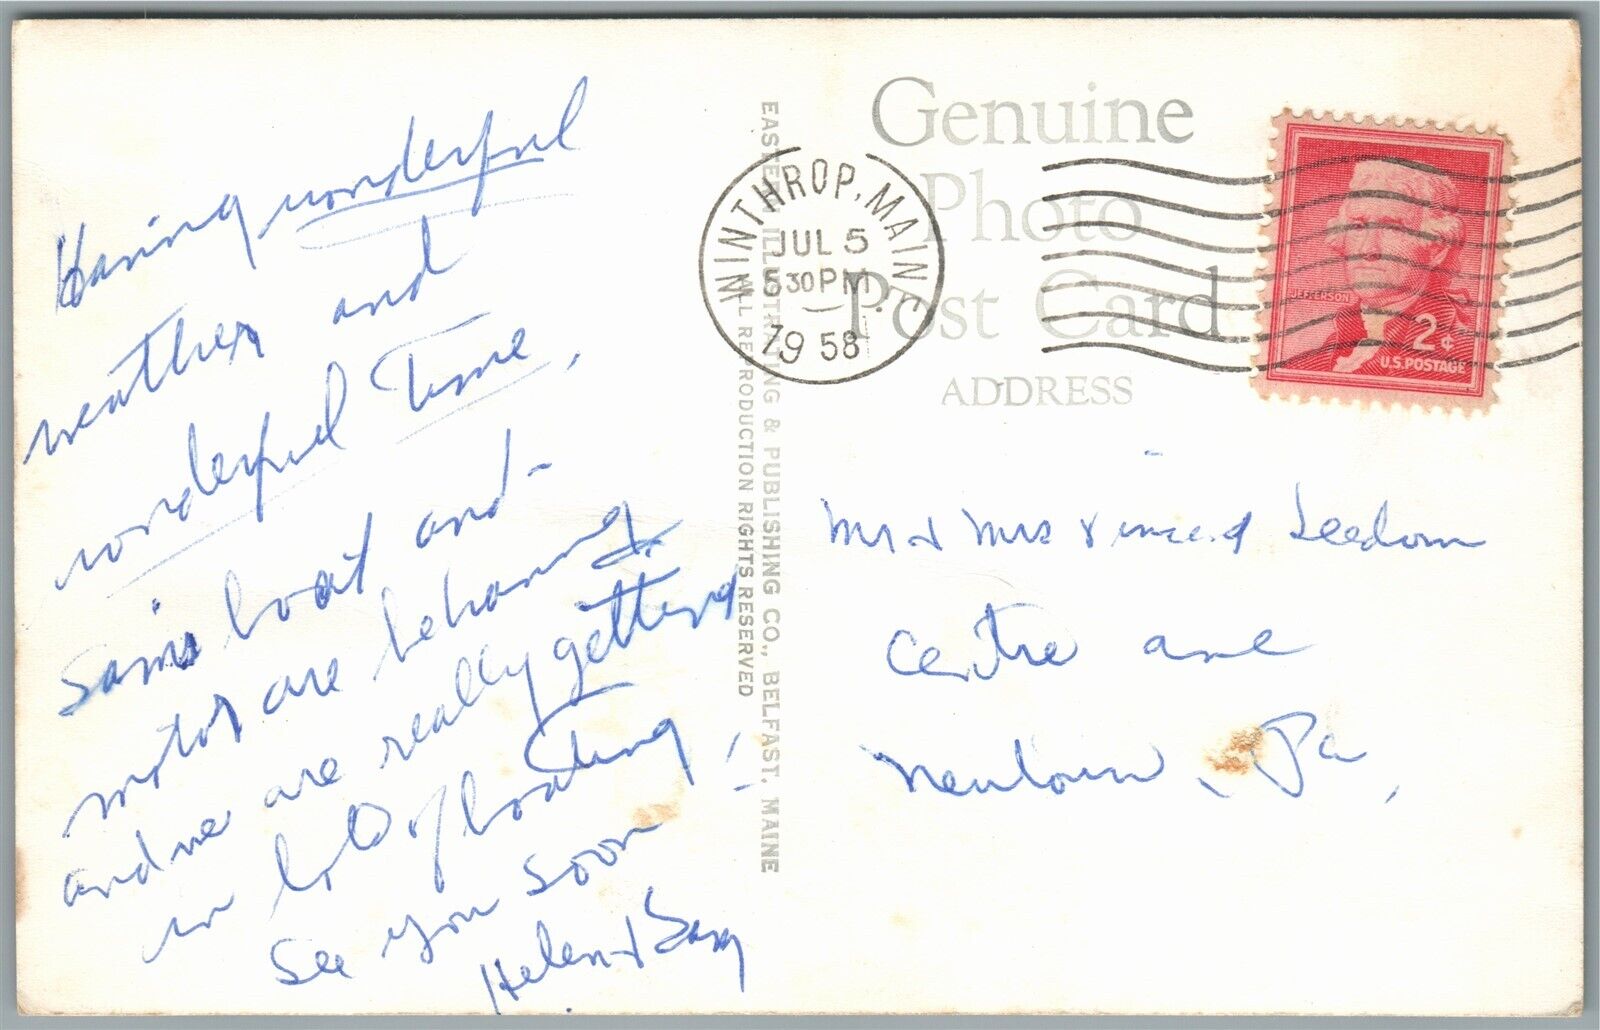 Having wonderful
weather and
wonderful Time.
Sam's boat and
motor are behaving
and we are really getting
in lots of boating,
See you soon
Helen &
EASTERN ILLUSTRATING & PUBLISHING CO., BELFAST, MAINE
ALL REPRODUCTION RIGHTS RESERVED
Genuine
Photo
Post Card
ADDRESS
WINTHROP, MAINE
JUL 5
530 PM
1958
JEFFERSON
2¢
U.S. POSTAGE
Mr & Mrs Vincent Leedom
Centre Ave
Newtown, Pa,